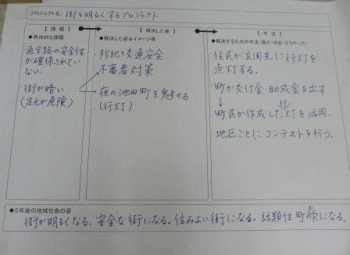 プロジェクト名: 街を明るくするプロジェクト
【課題】
【解決した姿】
【手法】
●具体的な課題
●解決した姿&イメージ等
●解決するための手法(誰が・何を・どうやって)
通学路の安全性
が確保されてい
ない。
街が暗い
(足元が危険)
・防犯と交通安全
・不審者対策
・夜の池田町を魅せる
(行灯)
・住民が玄関先に行灯を
点灯する。
・町が交付金・助成金を出す
↓
・町民が作成した行灯を活用、
地区ごとにコンテストを行う。
●5年後の地域社会の姿
街が明るくなる。安全な街になる。住みよい街になる。話題性